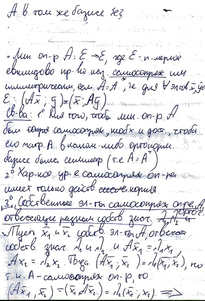 A в том же базисе без
• Лин оп-р A: E → E, где E - n-мерное
евклидово пр-во наз. самосопряж или
симметрическим, если A = A*, т.е. для ∀
E: (Ax, y) = (x, Ay)
Св-ва: 1° Для того, чтобы лин. оп-р A
был самосопряж, необх и дост, чтобы
его матр. A в каком-либо ортонорм.
базисе была симметр (т.е. A = Aᵀ)
2° Хар-кое ур-е самосопряж оп-ра
имеет только действ корни
3° Собственные эл-ты самосопряж опер. A,
отвечающие разным собств знач.
Пусть x₁ и x₂ собств эл-ты A, отвеч
собств знач. λ₁ и λ₂ и Ax₁ = λ₁x₁
Ax₂ = λ₂x₂. Тогда (Ax₁, x₂) = λ₁(x₁, x₂), но
т.к. A - самосопряж оп-р, то
(Ax₁, x₂) = (x₁, Ax₂) = λ₂(x₁, x₂) ⇒